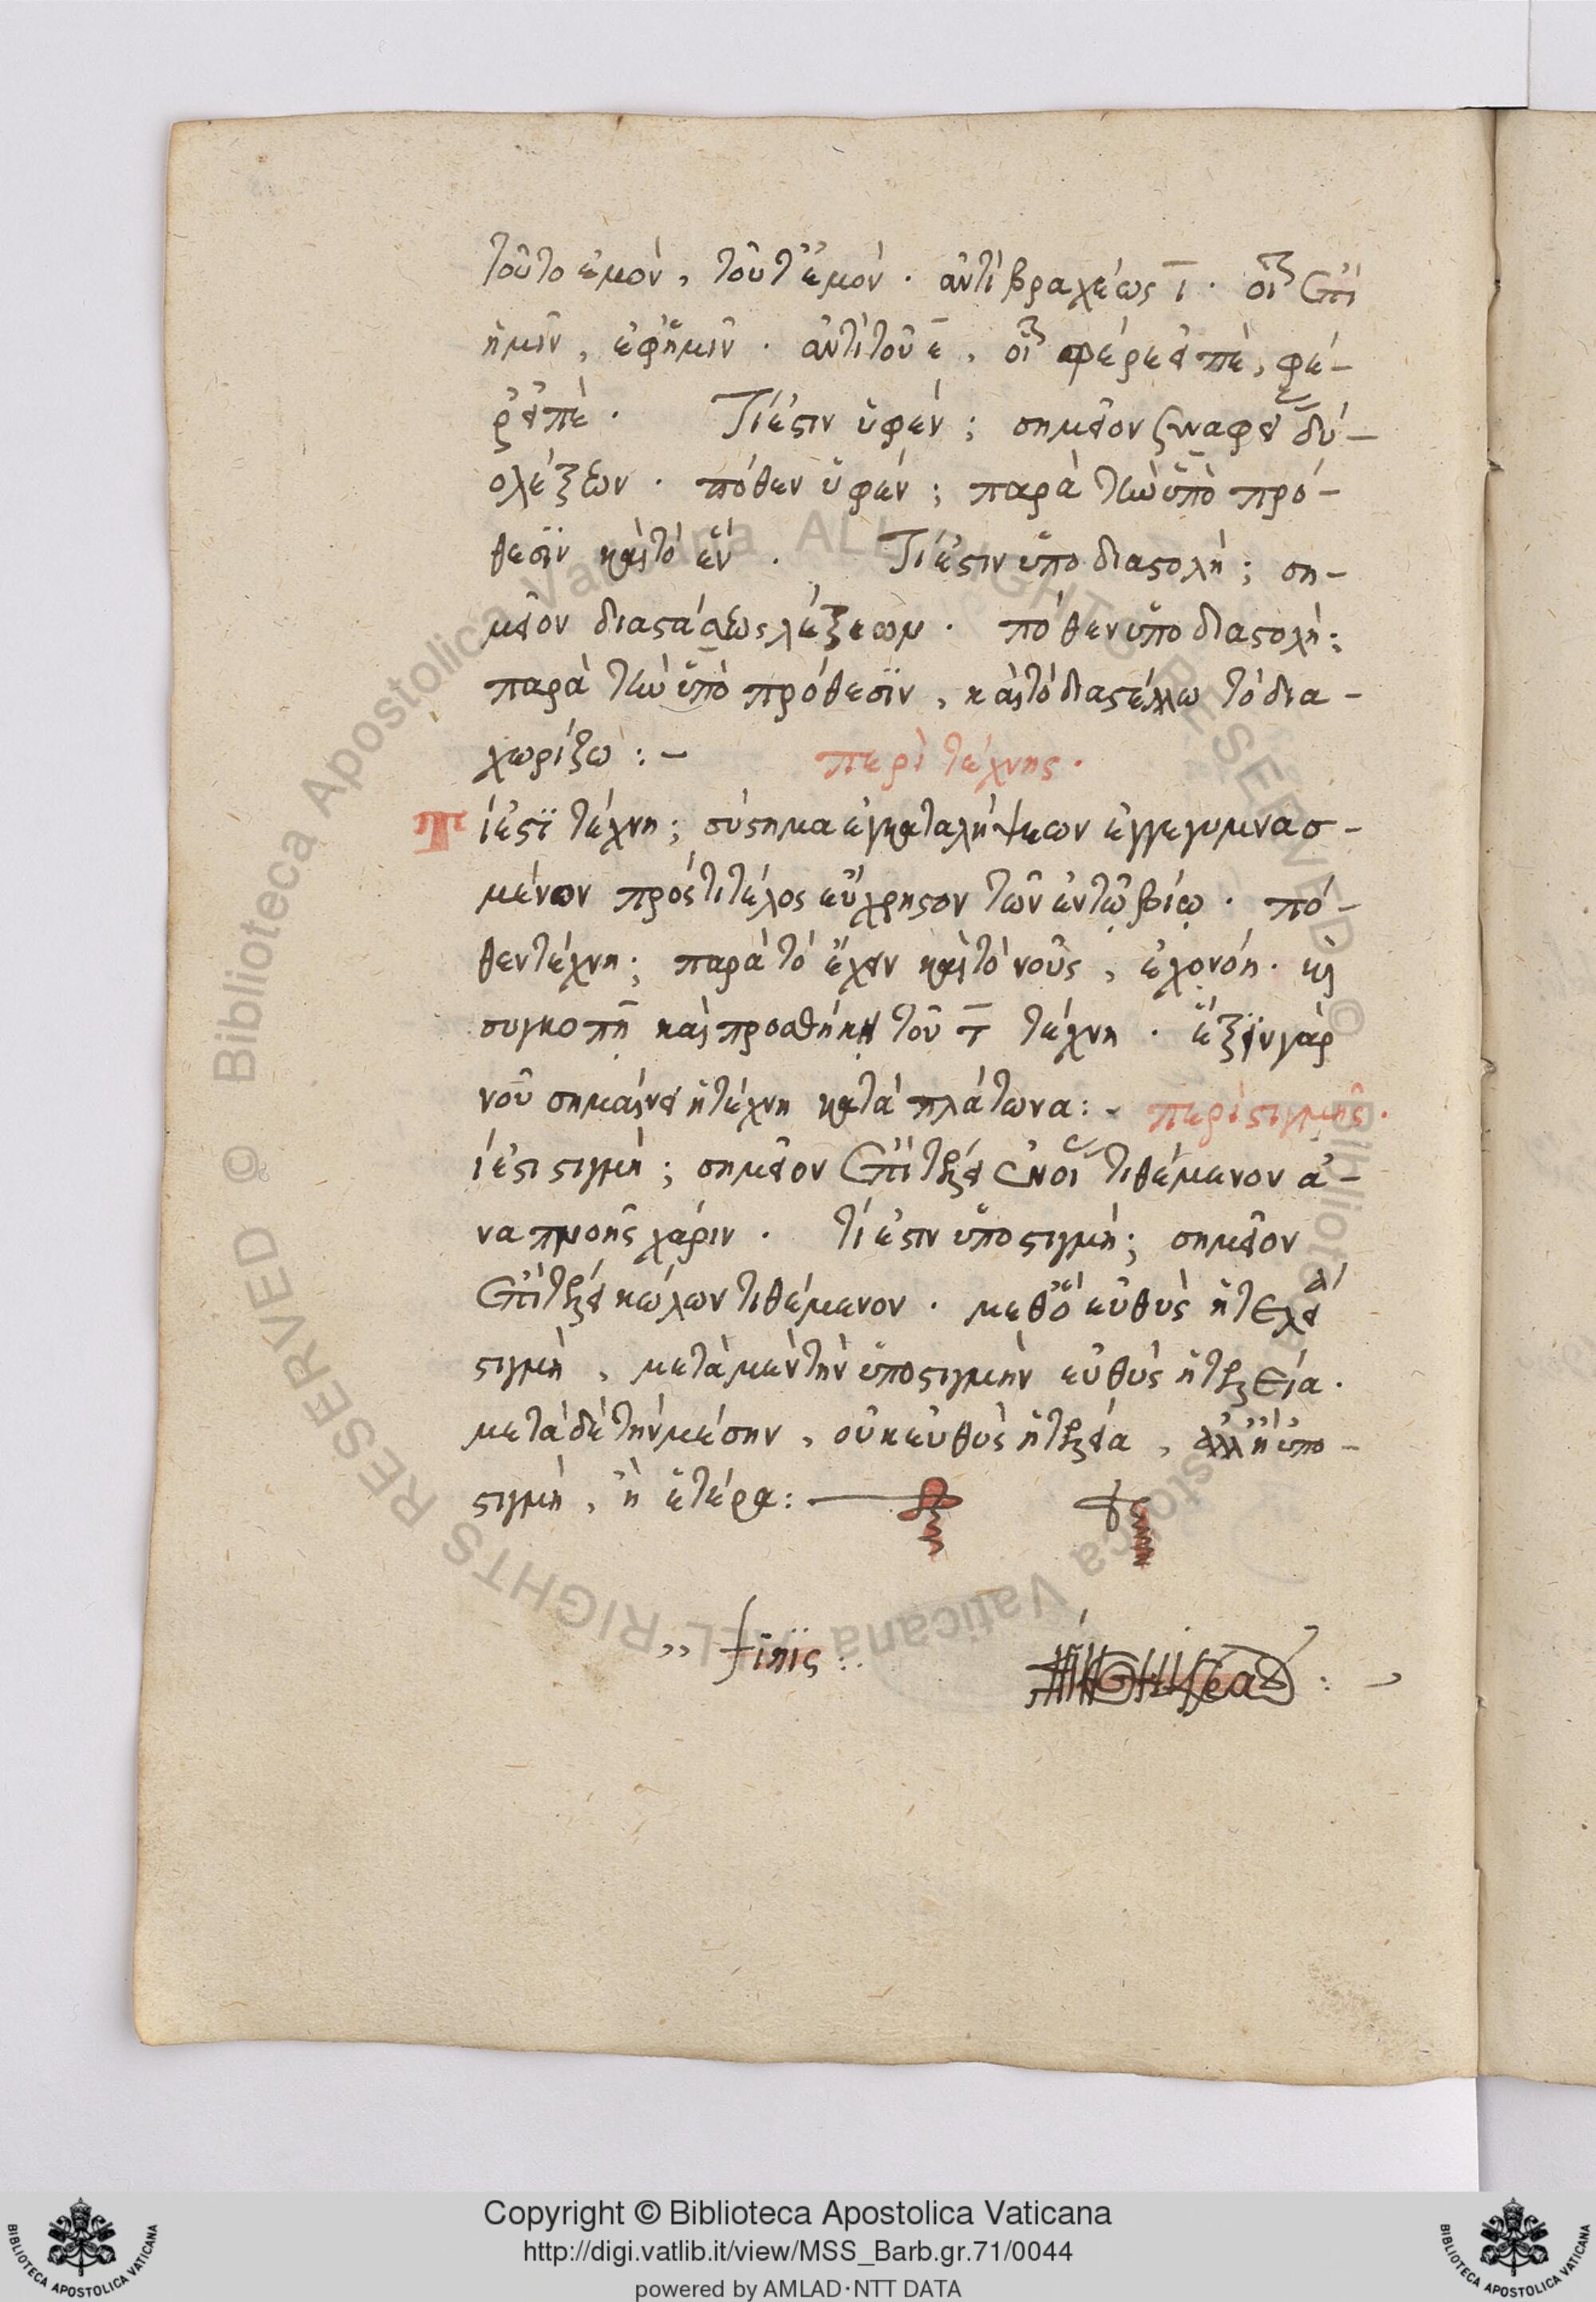 τοῦτο ἐμὸν, τοῦτ' ἐμόν· ἀντὶ βραχέως ῑ· οἷον ἐπὶ
ἡμῖν, ἐφ' ἡμῖν· ἀντὶ τοῦ ε̄, οἷον φέρε εἰπὲ, φέ-
ρ' εἰπὲ· Τί ἐστιν ὑφέν; σημεῖον συναφείας δύ-
ο λέξεων· πόθεν ὑφέν; παρὰ τὴν ὑπὸ πρό-
θεσϊν καὶ τὸ ἕν· Τί ἐστιν ὑποδιαστολή; ση-
μεῖον διαστάσεως λέξεων· πόθεν ὑποδιαστολή;
παρὰ τὴν ὑπὸ πρόθεσϊν, καὶ τὸ διαστέλλω τὸ δια-
χωρίζω :-
περὶ τέχνης·
Τί ἐστϊ τέχνη; σύστημα ἐγκαταλήψεων ἐγγεγυμνασ-
μένων πρός τι τέλος εὔχρηστον τῶν ἐν τῷ βίῳ· πό-
θεν τέχνη; παρὰ τὸ ἔχειν καὶ τὸ νοῦς, ἐχονόη· καὶ
συγκοπῇ καὶ προσθήκῃ τοῦ τ̄ τέχνη· ἕξιν γὰρ
νοῦ σημαίνει ἡ τέχνη κατὰ πλάτωνα :-
περὶ στιγμῆς·
ί ἐστι στιγμή; σημεῖον ἐπὶ τελείας ἐννοίας τιθέμενον ἀ-
ναπνοῆς χάριν· τί ἐστιν ὑποστιγμή; σημεῖον
ἐπὶ τελεία κώλων τιθέμενον· μεθ' ὃ εὐθὺς ἡ τελεία
στιγμή, μετὰ μὲν τὴν ὑποστιγμὴν εὐθὺς ἡ τελεία·
μετὰ δὲ τὴν μέσην, οὐκ εὐθὺς ἡ τελεία, ἀλλ' ἢ ὑπο-
στιγμή, ἢ ἑτέρα :
,, finis :.
Copyright © Biblioteca Apostolica Vaticana
http://digi.vatlib.it/view/MSS_Barb.gr.71/0044
powered by AMLAD·NTT DATA
BIBLIOTECA APOSTOLICA VATICANA
BIBLIOTECA APOSTOLICA VATICANA
Biblioteca Apostolica Vaticana ALL RIGHTS RESERVED ©
Biblioteca Apostolica Vaticana ALL RIGHTS RESERVED ©